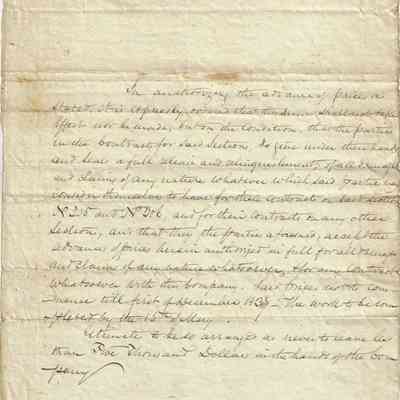 In authorizing the advance of price as
stated, it is expressly ordered that the same shall not take
effect nor be made, but on the condition that the parties
in the Contract for said Section, do give under their hands
and seal a full release and relinquishment, of all damages
and claims of any nature whatever which said parties may
consider themselves to have for their contracts on said section
No 215 and No 216, and for their Contracts on any other
Section, and that they the parties aforesaid, accept the
advance of price herein authorized in full for all damages
and claims of any nature whatsoever, for any contracts
whatsoever with the Company. Said prices not to com
mence till first of December 1839 - The work to be com
pleted by the 15th of May.
Estimate to be so arranged as never to leave less
than Five Thousand Dollars in the hands of the Com
pany